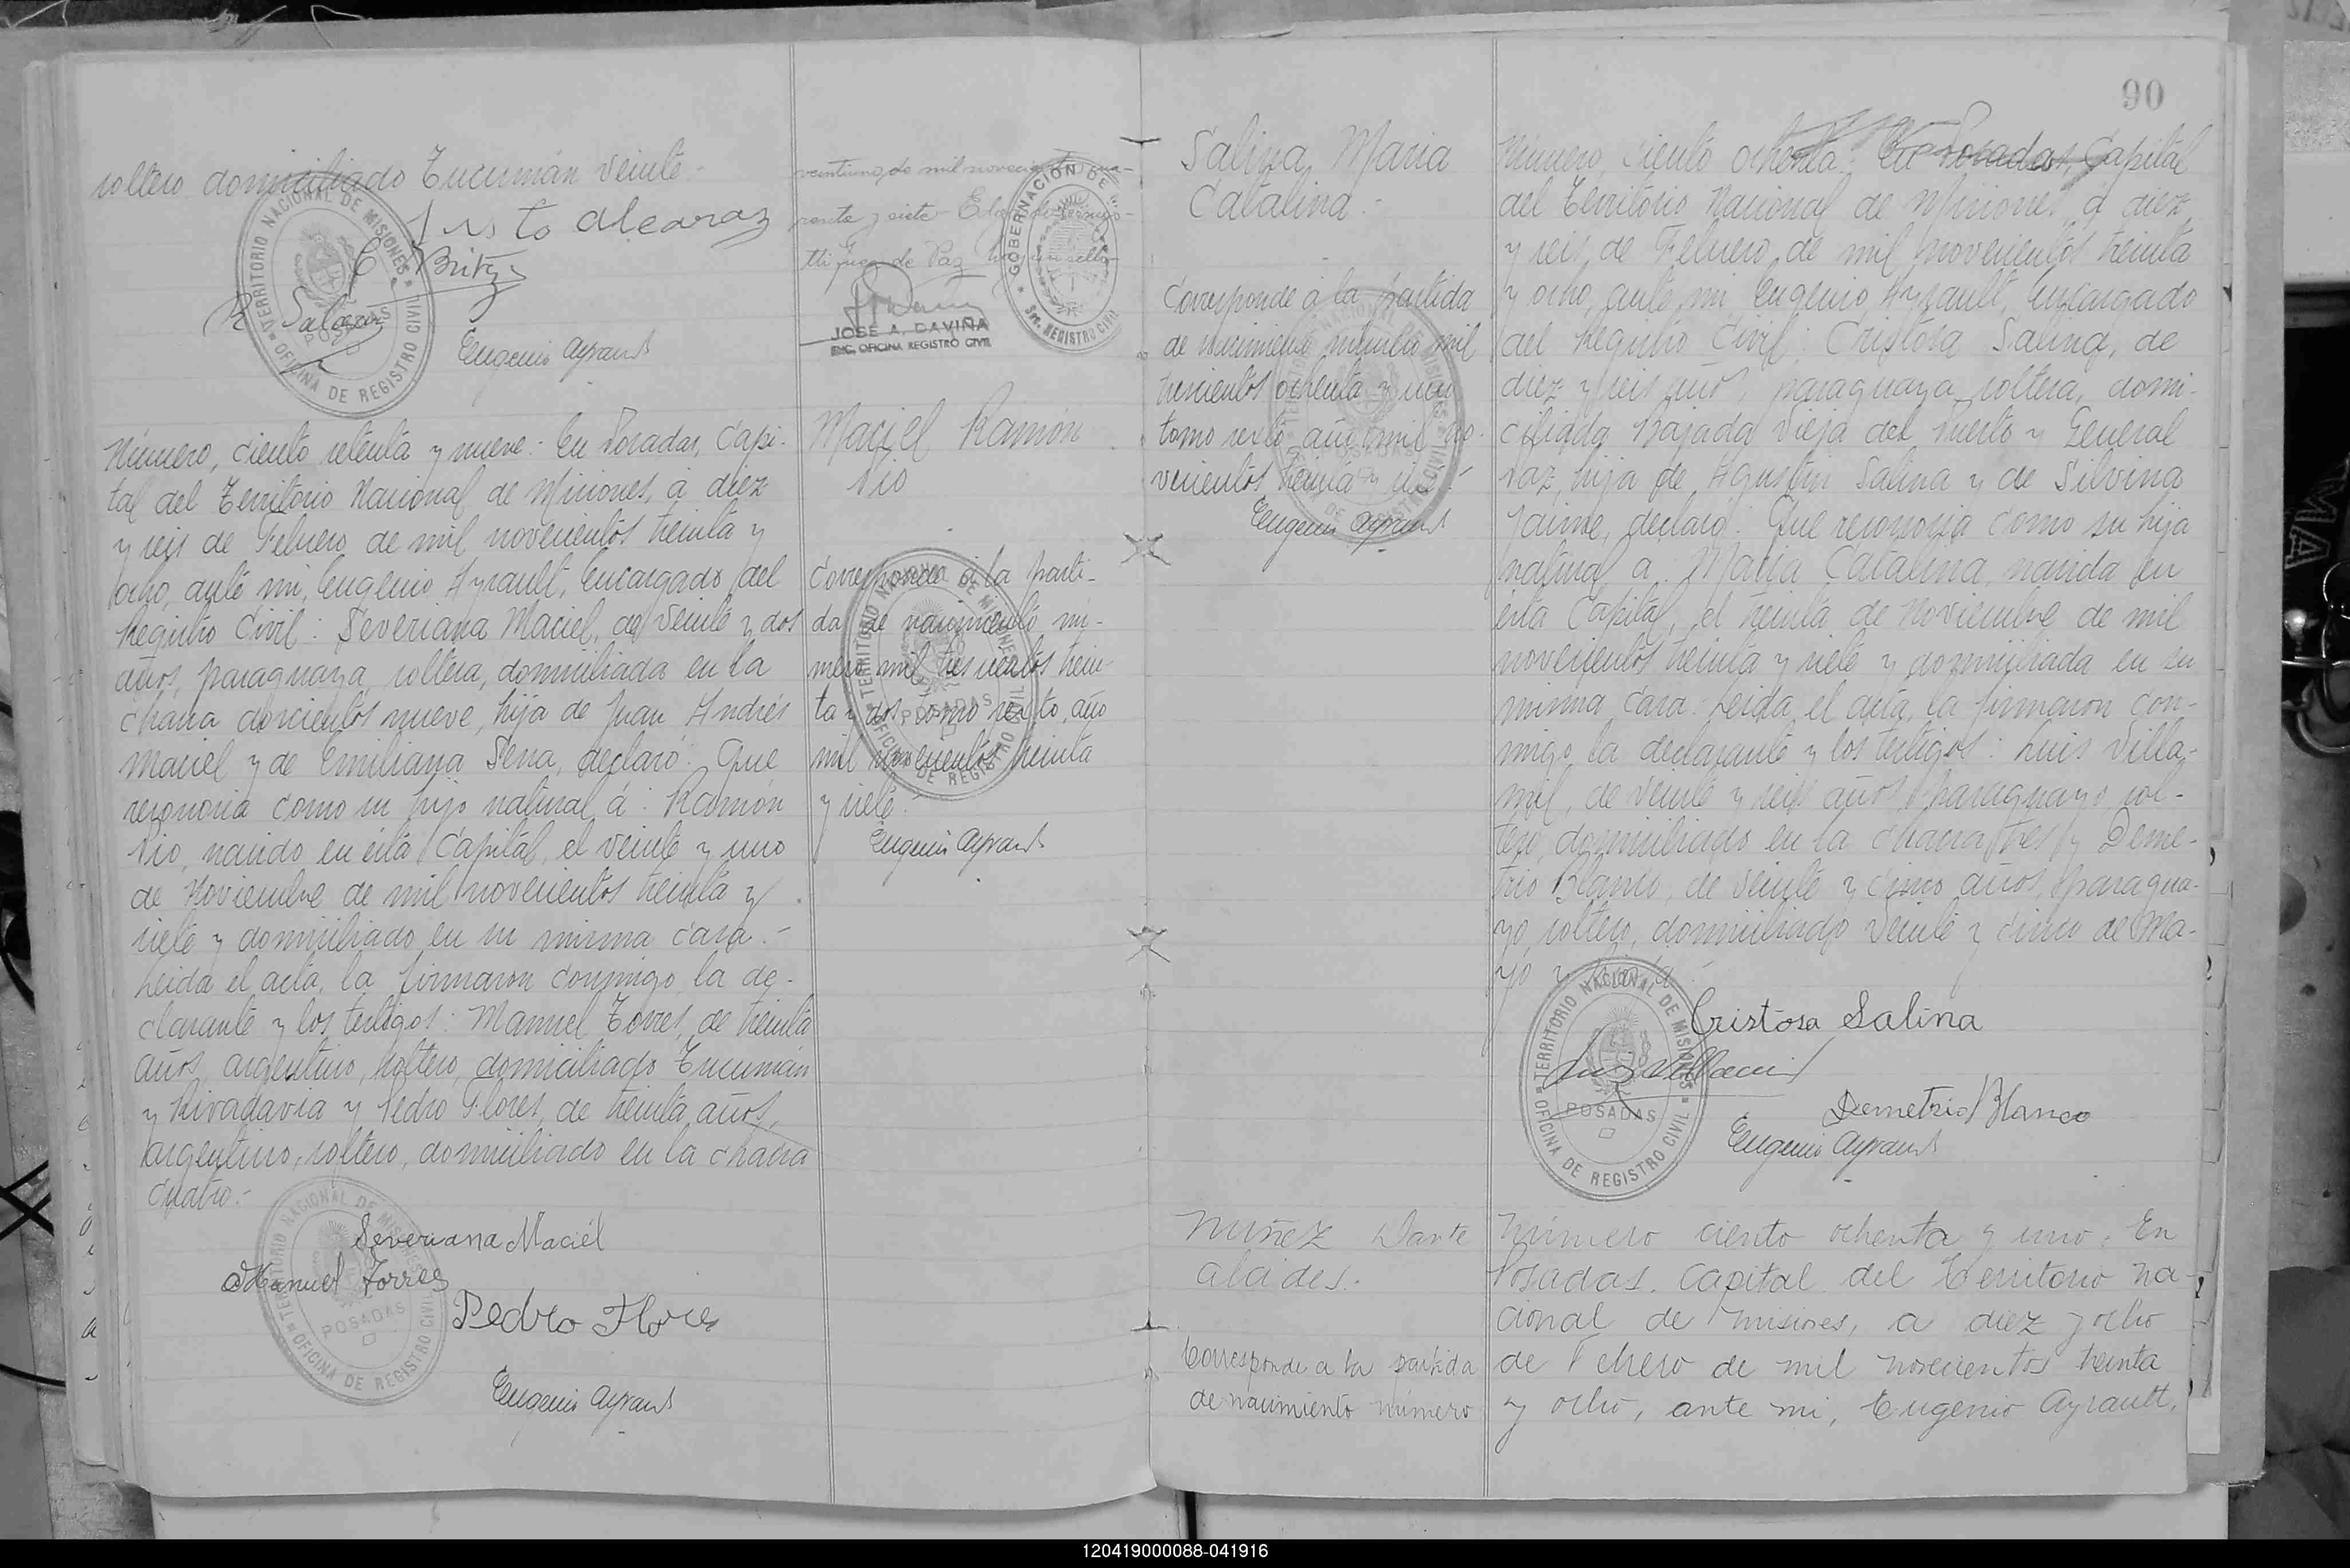 soltero domiciliado Tucumán veinte.-
Justo Alcaraz
C Britz
R Salazar
Eugenio Ayrault
TERRITORIO NACIONAL DE MISIONES
POSADAS
OFICINA DE REGISTRO CIVIL
veintiuno, de mil novecientos cua-
renta y siete
de Paz hay un sello
GOBERNACIÓN DE
REGISTRO CIVIL
JOSE A. DAVIÑA
ENC. OFICINA REGISTRO CIVIL
Número, ciento setenta y nueve: En Posadas, Capi-
tal del Territorio Nacional de Misiones, á diez
y seis de Febrero de mil novecientos treinta y
ocho, ante mi, Eugenio Ayrault, Encargado del
Registro Civil: Severiana Maciel, de veinte y dos
años, paraguaya, soltera, domiciliada en la
chacra doscientos nueve, hija de Juan Andrés
Maciel y de Emiliana Sena, declaró: Que
reconocia como su hijo natural á: Ramón
Pio, nacido en esta Capital, el veinte y uno
de Noviembre de mil novecientos treinta y
siete y domiciliado en su misma casa.-
Leida el acta, la firmaron conmigo la de-
clarante y los testigos: Manuel Torres, de treinta
años, argentino, soltero, domiciliado Tucumán
y Rivadavia y Pedro Flores, de treinta años,
argentino, soltero, domiciliado en la chacra
cuatro.-
Severiana Maciel
Manuel Torres
Pedro Flores
Eugenio Ayrault
TERRITORIO NACIONAL DE MISIONES
POSADAS
OFICINA DE REGISTRO CIVIL
Maciel Ramón
Pio
Corresponde á la parti-
da de nacimiento nú-
mero mil trescientos trein-
ta y dos, tomo sexto, año
mil novecientos treinta
y siete.-
Eugenio Ayrault
TERRITORIO NACIONAL DE MISIONES
POSADAS
OFICINA DE REGISTRO CIVIL
90
Salina Maria
Catalina.-
Corresponde á la partida
de nacimiento número mil
trescientos ochenta y un
tomo sexto año mil no-
vecientos treinta y siete.-
Eugenio Ayrault
Número, ciento ochenta: En Posadas, Capital
del Territorio Nacional de Misiones, á diez
y seis de Febrero de mil novecientos treinta
y ocho, ante mi Eugenio Ayrault, Encargado
del Registro Civil: Cristosa Salina, de
diez y seis años, paraguaya, soltera, domi-
ciliada Bajada Vieja del Puerto y General
Paz, hija de Agustin Salina y de Silvina
Jaime, declaró: Que reconocia como su hija
natural a: Maria Catalina, nacida en
esta Capital, el treinta de Noviembre de mil
novecientos treinta y siete y domiciliada en su
misma casa. Leida el acta, la firmaron con-
migo la declarante y los testigos: Luis Villa-
mil, de veinte y seis años, paraguayo, sol-
tero, domiciliado en la chacra tres y Deme-
trio Blanco, de veinte y cinco años, paragua-
yo, soltero, domiciliado Veinte y cinco de Ma-
yo y
Cristosa Salina
Luis Villamil
Demetrio Blanco
Eugenio Ayrault
TERRITORIO NACIONAL DE MISIONES
POSADAS
OFICINA DE REGISTRO CIVIL
Nuñez Dante
Alcides.
Corresponde a la partida
de nacimiento número
Número ciento ochenta y uno: En
Posadas, Capital del Territorio Na-
cional de Misiones, a diez y ocho
de Febrero de mil novecientos treinta
y ocho, ante mi, Eugenio Ayrault,
120419000088-041916